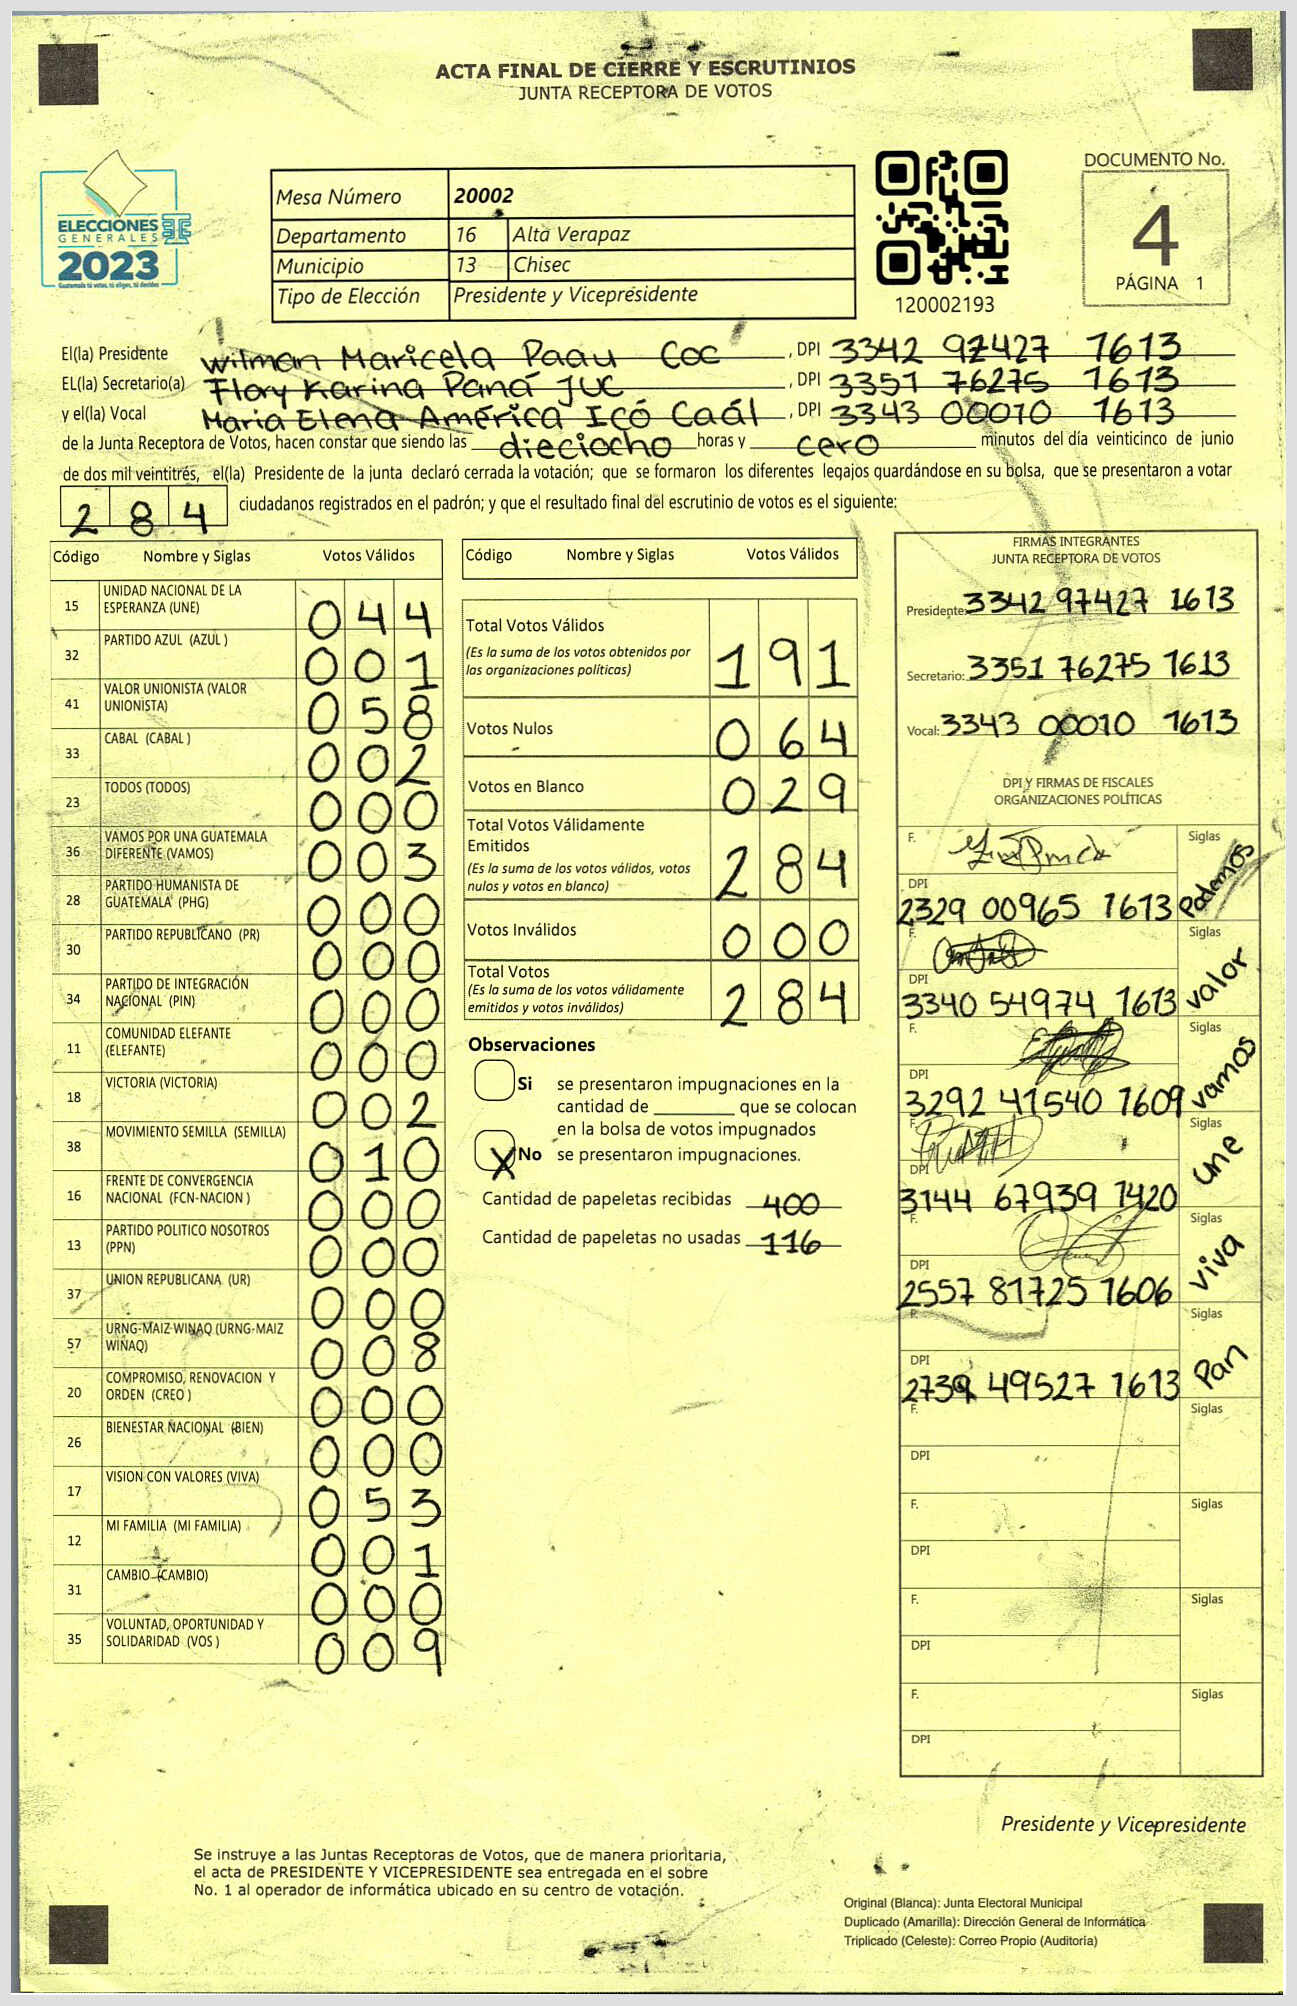 ACTA FINAL DE CIERRE Y ESCRUTINIOS
JUNTA RECEPTORA DE VOTOS
ELECCIONES
GENERALES
2023
Guatemala tú votas, tú eliges, tú decides
Mesa Número 20002
Departamento 16 Alta Verapaz
Municipio 13 Chisec
Tipo de Elección Presidente y Vicepresidente
120002193
DOCUMENTO No.
4
PÁGINA 1
El(la) Presidente Wilman Maricela Paau Coc , DPI 3342 97427 1613
EL(la) Secretario(a) Flory Karina Paná JUC , DPI 3351 76275 1613
y el(la) Vocal Maria Elena América Icó Caál , DPI 3343 00010 1613
de la Junta Receptora de Votos, hacen constar que siendo las dieciocho horas y cero minutos del día veinticinco de junio
de dos mil veintitrés, el(la) Presidente de la junta declaró cerrada la votación; que se formaron los diferentes legajos guardándose en su bolsa, que se presentaron a votar
284 ciudadanos registrados en el padrón; y que el resultado final del escrutinio de votos es el siguiente:
Código Nombre y Siglas Votos Válidos
15 UNIDAD NACIONAL DE LA ESPERANZA (UNE) 044
32 PARTIDO AZUL (AZUL ) 001
41 VALOR UNIONISTA (VALOR UNIONISTA) 058
33 CABAL (CABAL ) 002
23 TODOS (TODOS) 000
36 VAMOS POR UNA GUATEMALA DIFERENTE (VAMOS) 003
28 PARTIDO HUMANISTA DE GUATEMALA (PHG) 000
30 PARTIDO REPUBLICANO (PR) 000
34 PARTIDO DE INTEGRACIÓN NACIONAL (PIN) 000
11 COMUNIDAD ELEFANTE (ELEFANTE) 000
18 VICTORIA (VICTORIA) 002
38 MOVIMIENTO SEMILLA (SEMILLA) 010
16 FRENTE DE CONVERGENCIA NACIONAL (FCN-NACION ) 000
13 PARTIDO POLITICO NOSOTROS (PPN) 000
37 UNION REPUBLICANA (UR) 000
57 URNG-MAIZ-WINAQ (URNG-MAIZ WINAQ) 008
20 COMPROMISO, RENOVACION Y ORDEN (CREO ) 000
26 BIENESTAR NACIONAL (BIEN) 000
17 VISION CON VALORES (VIVA) 053
12 MI FAMILIA (MI FAMILIA) 001
31 CAMBIO (CAMBIO) 000
35 VOLUNTAD, OPORTUNIDAD Y SOLIDARIDAD (VOS ) 009
Código Nombre y Siglas Votos Válidos
Total Votos Válidos 191
(Es la suma de los votos obtenidos por
las organizaciones políticas)
Votos Nulos 064
Votos en Blanco 029
Total Votos Válidamente
Emitidos 284
(Es la suma de los votos válidos, votos
nulos y votos en blanco)
Votos Inválidos 000
Total Votos 284
(Es la suma de los votos válidamente
emitidos y votos inválidos)
Observaciones
Si se presentaron impugnaciones en la
cantidad de ________ que se colocan
en la bolsa de votos impugnados
X No se presentaron impugnaciones.
Cantidad de papeletas recibidas 400
Cantidad de papeletas no usadas 116
FIRMAS INTEGRANTES
JUNTA RECEPTORA DE VOTOS
Presidente: 3342 97427 1613
Secretario: 3351 76275 1613
Vocal: 3343 00010 1613
DPI Y FIRMAS DE FISCALES
ORGANIZACIONES POLÍTICAS
F. Siglas
DPI 2329 00965 1613 Podemos
F. Siglas
DPI 3340 54974 1613 valor
F. Siglas
DPI 3292 41540 1609 vamos
F. Siglas
DPI 3144 67939 1420 une
F. Siglas
DPI 2557 81725 1606 viva
F. Siglas
DPI 2739 49527 1613 Pan
F. Siglas
DPI
F. Siglas
DPI
F. Siglas
DPI
F. Siglas
DPI
Presidente y Vicepresidente
Se instruye a las Juntas Receptoras de Votos, que de manera prioritaria,
el acta de PRESIDENTE Y VICEPRESIDENTE sea entregada en el sobre
No. 1 al operador de informática ubicado en su centro de votación.
Original (Blanca): Junta Electoral Municipal
Duplicado (Amarilla): Dirección General de Informática
Triplicado (Celeste): Correo Propio (Auditoría)